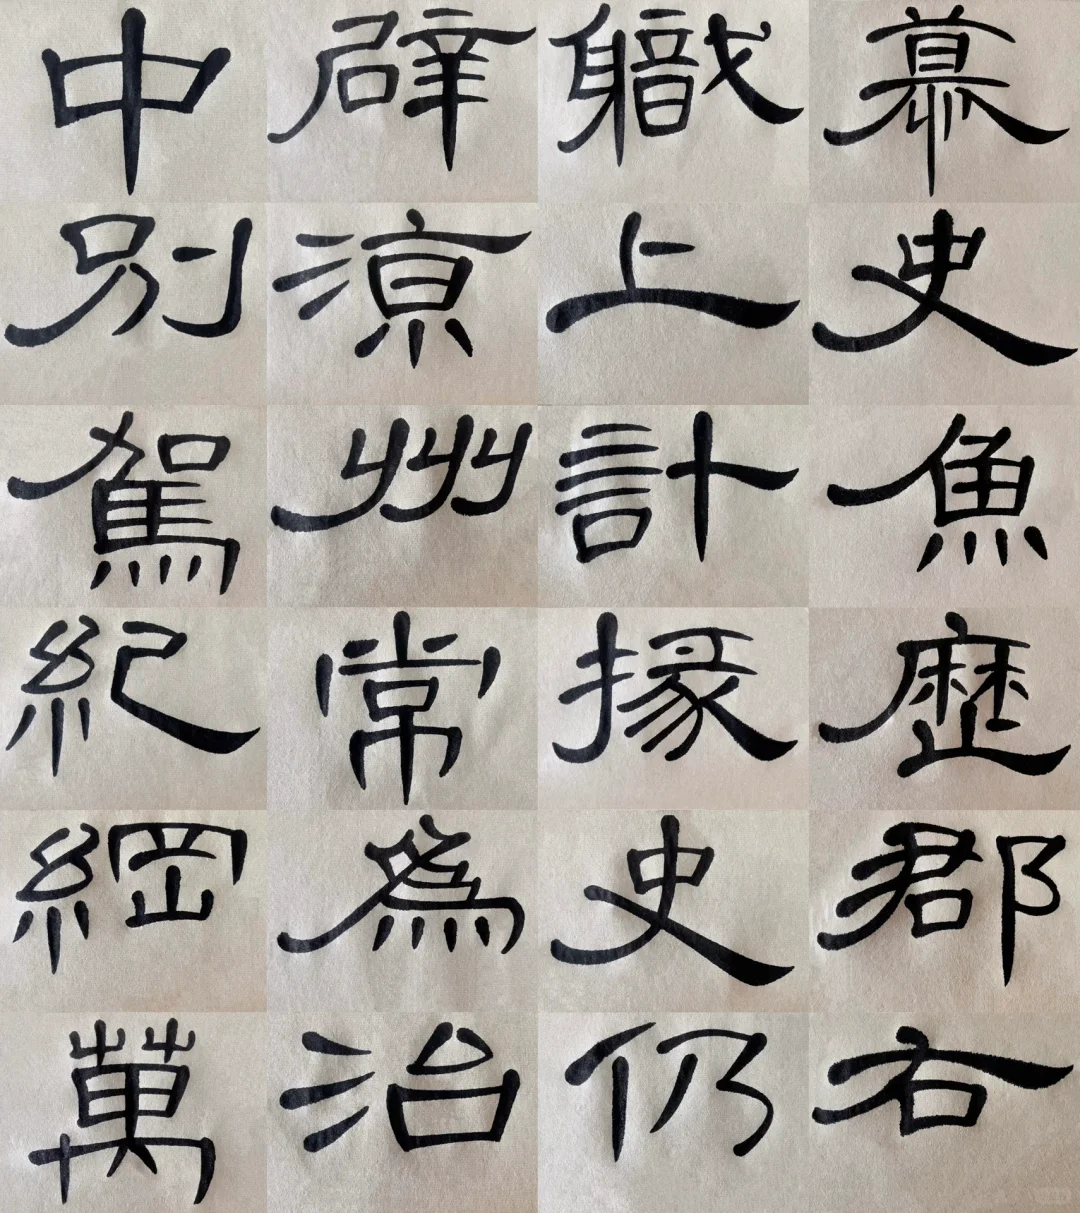 慕史魚歷郡右
職上計掾史仍
辟涼州常爲治
中別駕紀綱萬